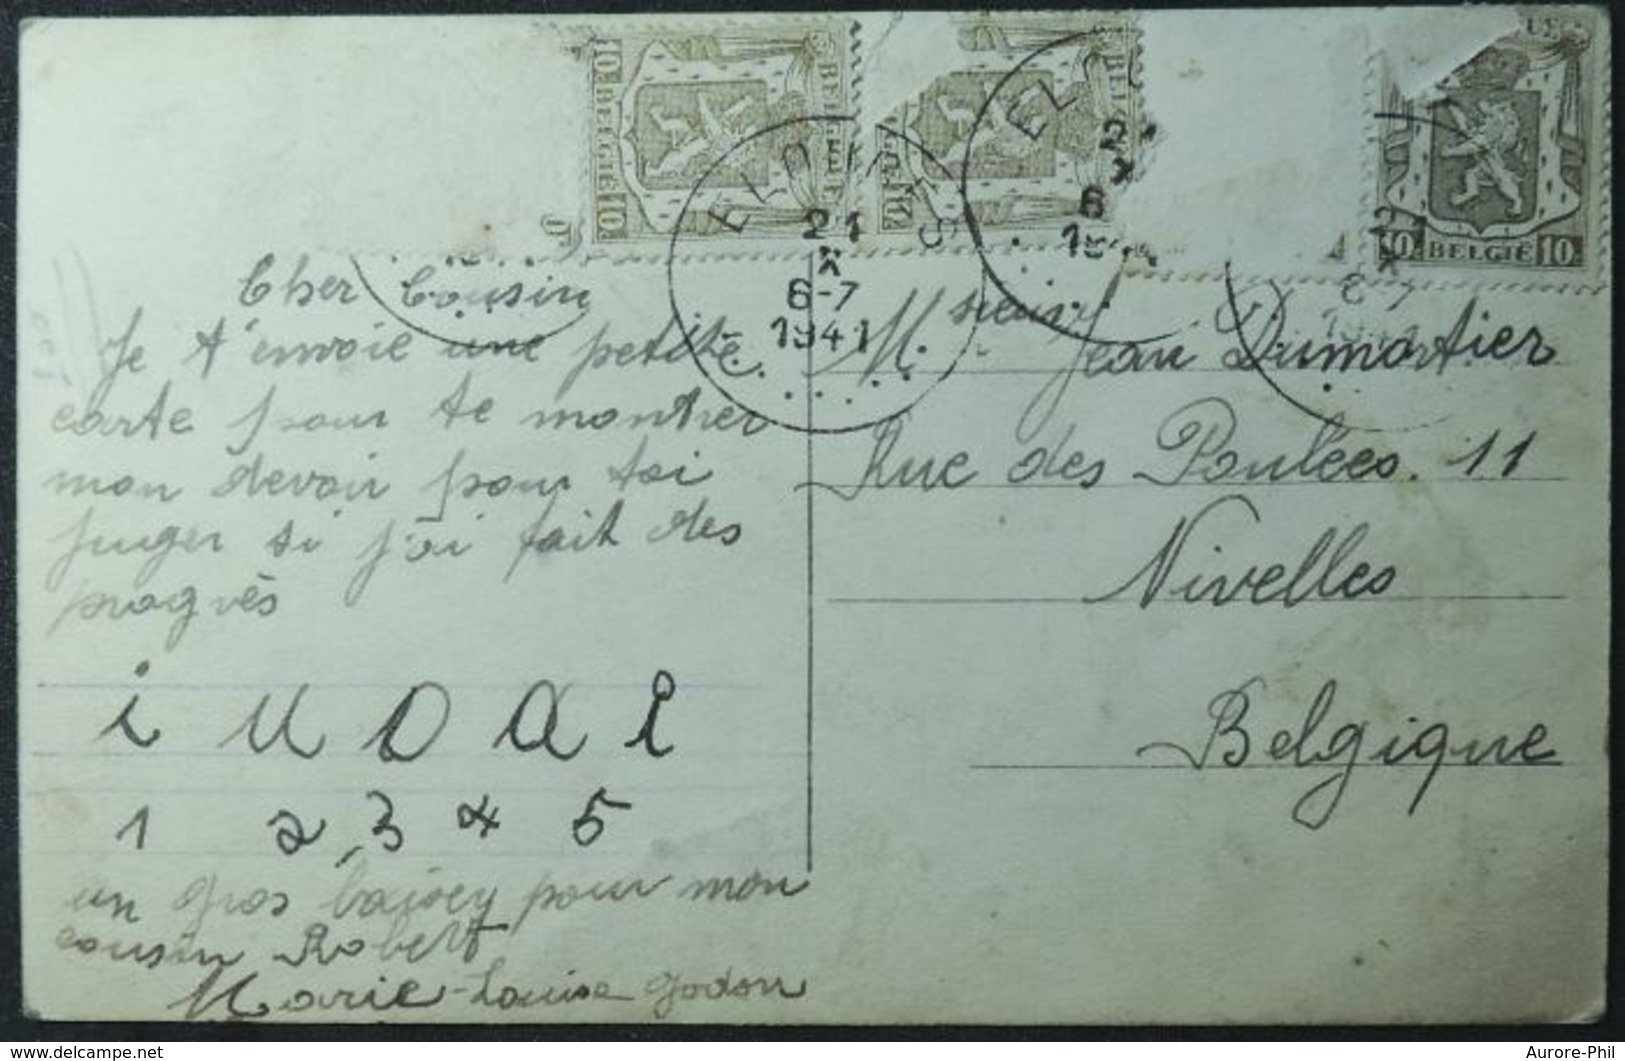 10 BELGIE BELGIQUE 10
10 BELGIE
BELGIE 10
10 BELGIË 10
21
X
6-7
1941
21
X
6
Cher Cousin
Je t'envoie une petite
carte pour te montrer
mon devoir pour toi
juger si j'ai fait des
progrès
i u o a e
1 2 3 4 5
un gros baisey pour mon
cousin Robert
Marie-Louise Godon
Msieur Jean Dumortier
Rue des Poulées. 11
Nivelles
Belgique
delcampe.net
Aurore-Phil